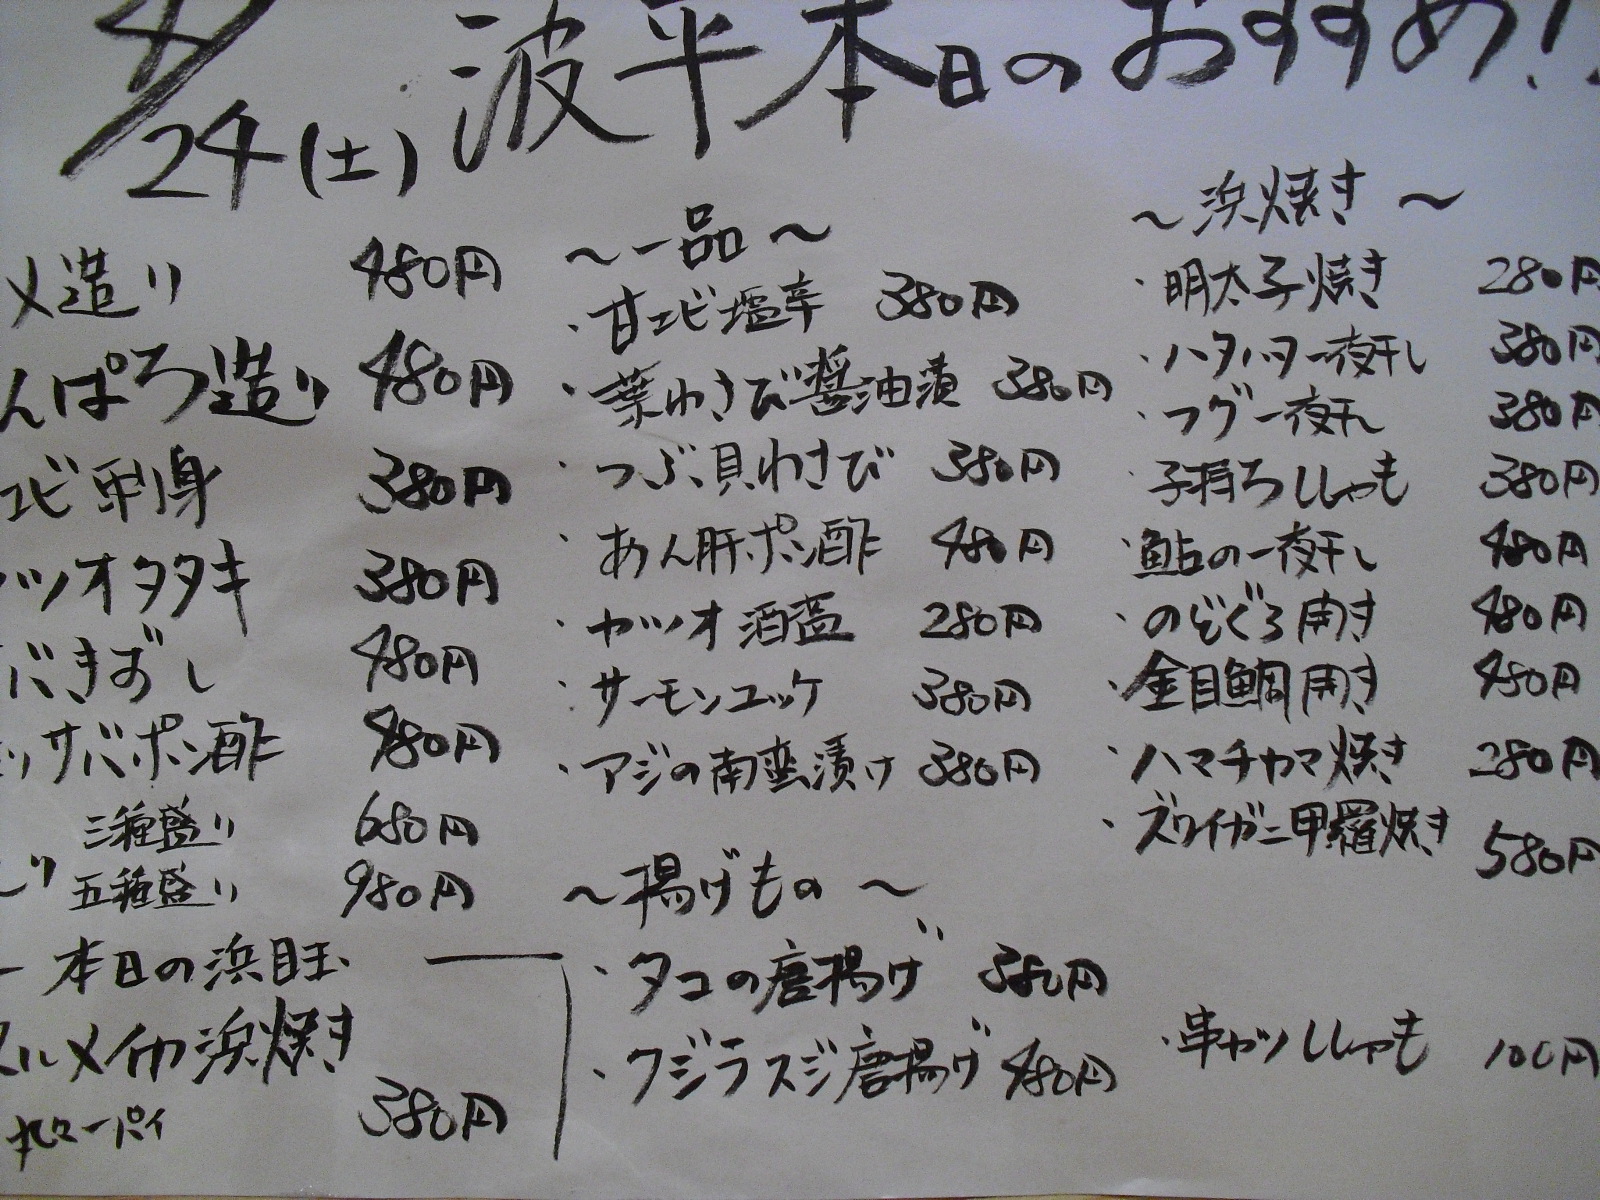 24(土) 波平本日のおすすめ!
メ造り 480円
んぱち造り 480円
エビ刺身 380円
ツオタタキ 380円
バきずし 480円
サバポン酢 480円
三種盛り 680円
五種盛り 980円
本日の浜目玉
スルメイカ浜焼き
丸々一パイ 380円
～一品～
・甘エビ塩辛 380円
・葉わさび醤油漬 380円
・つぶ貝わさび 380円
・あん肝ポン酢 480円
・カツオ酒盗 280円
・サーモンユッケ 380円
・アジの南蛮漬け 380円
～揚げもの～
・タコの唐揚げ 380円
・クジラスジ唐揚げ 480円
～浜焼き～
・明太子焼き 280円
・ハタハタ一夜干し 380円
・フグ一夜干し 380円
・子持ちししゃも 380円
・鮎の一夜干し 480円
・のどぐろ開き 480円
・金目鯛開き 480円
・ハマチカマ焼き 280円
・ズワイガニ甲羅焼き 580円
・串カツししゃも 100円